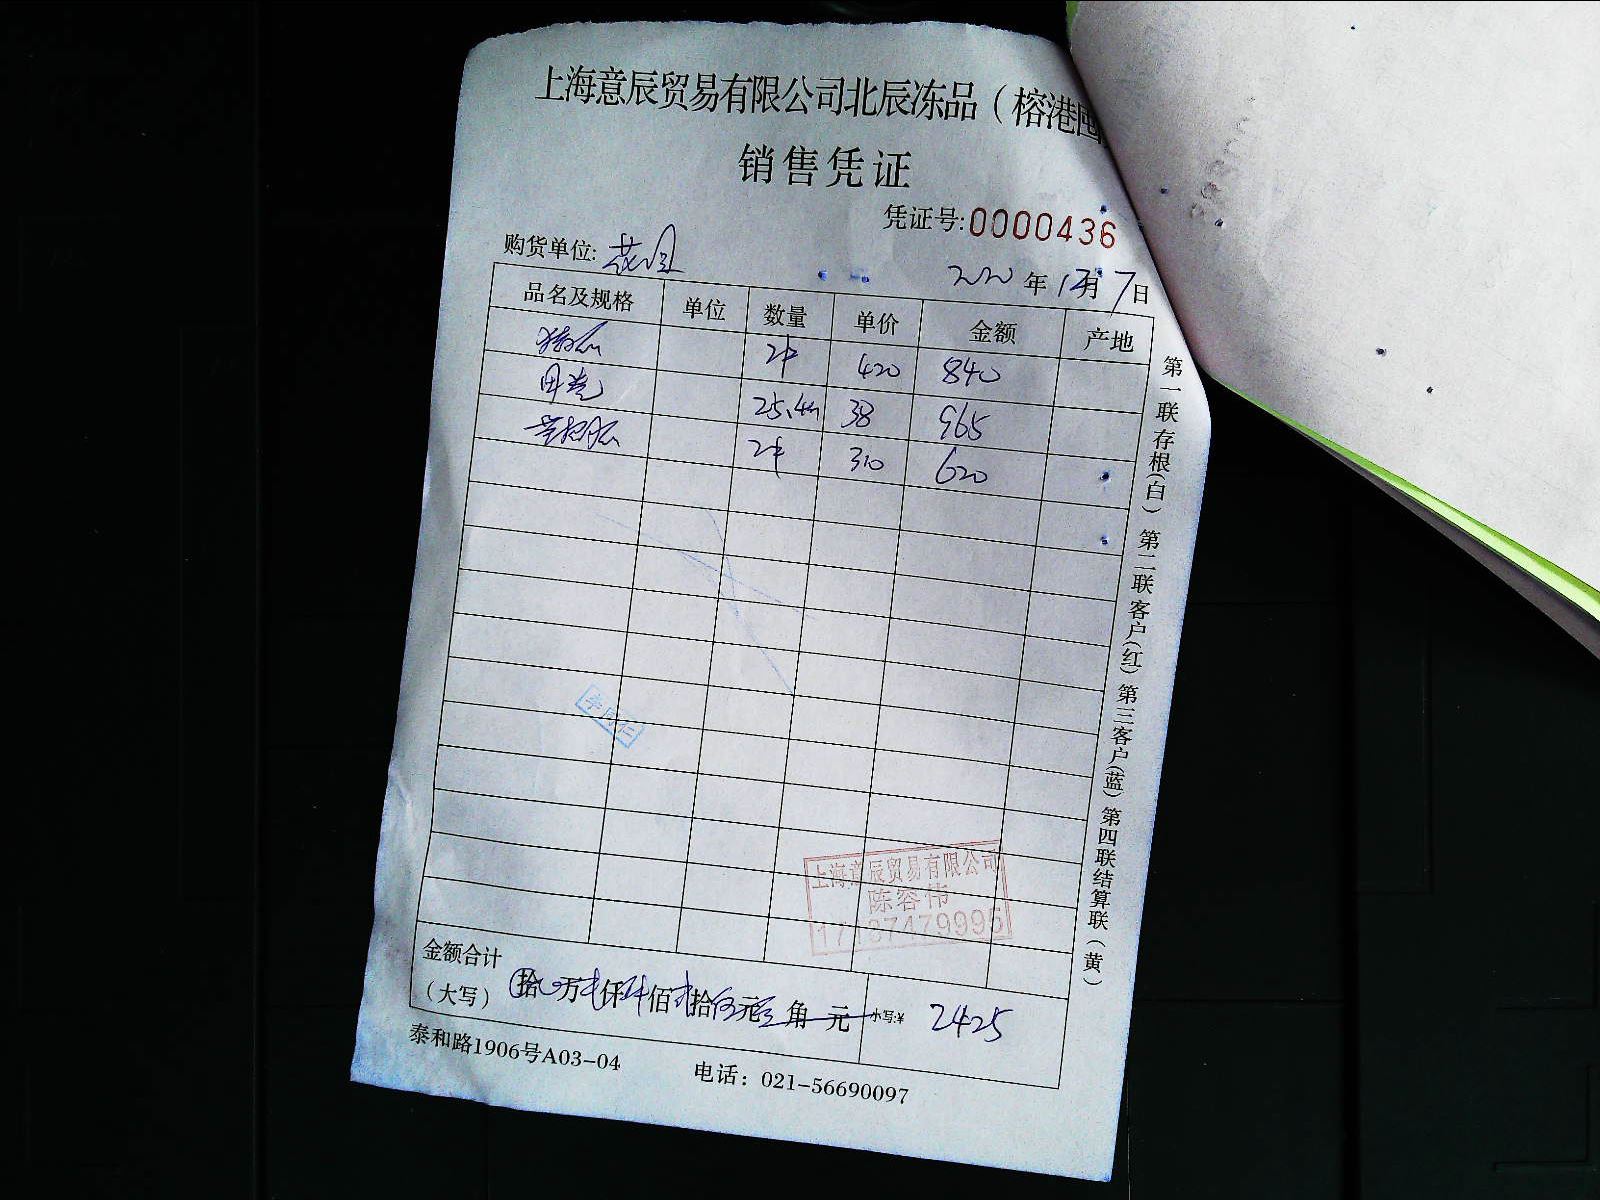 上海意辰贸易有限公司北辰冻品（榕港
销售凭证
凭证号:0000436
购货单位: 花园
2020 年 12月 7日
品名及规格 单位 数量 单价 金额 产地
2件 420 840
25.4 38 965
2件 310 620
第一联存根(白) 第二联客户(红) 第三客户(蓝) 第四联结算联(黄)
上海意辰贸易有限公司
陈容伟
17137479995
金额合计
（大写） 拾 万 仟 佰 拾 元 角 元 小写:¥ 2425
泰和路1906号A03-04 电话：021-56690097